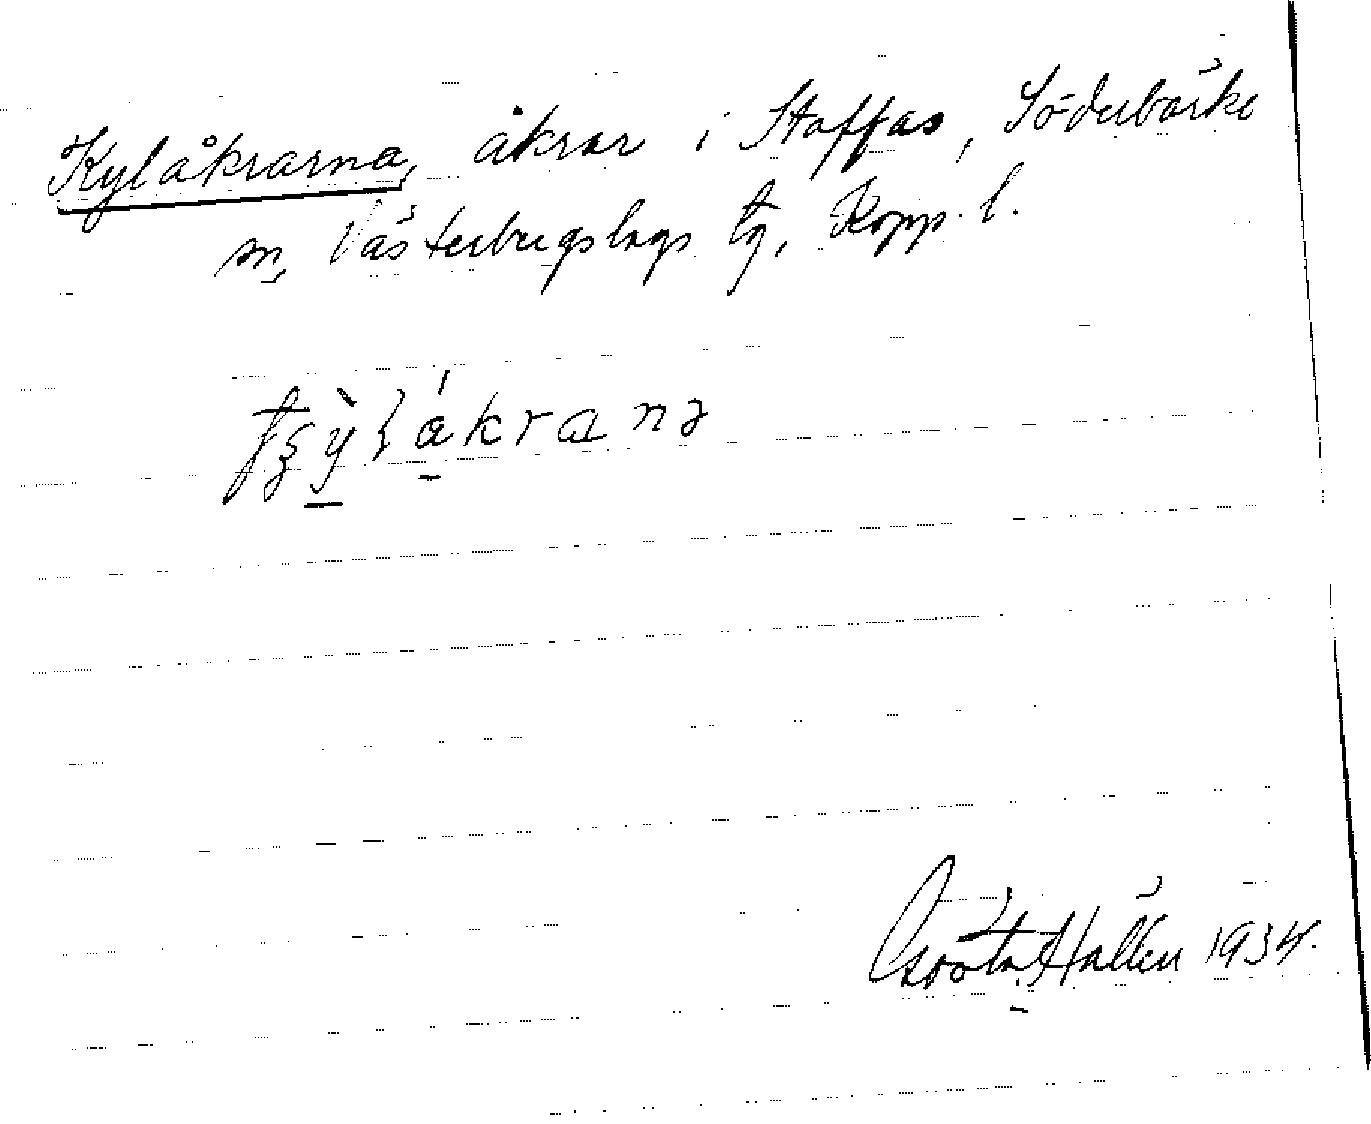 Kylåkrarna, åkrar i Staffas, Söderbärke
sn, Västerbergslags tg, Kopp. l.
Gösta Hallén 1934.